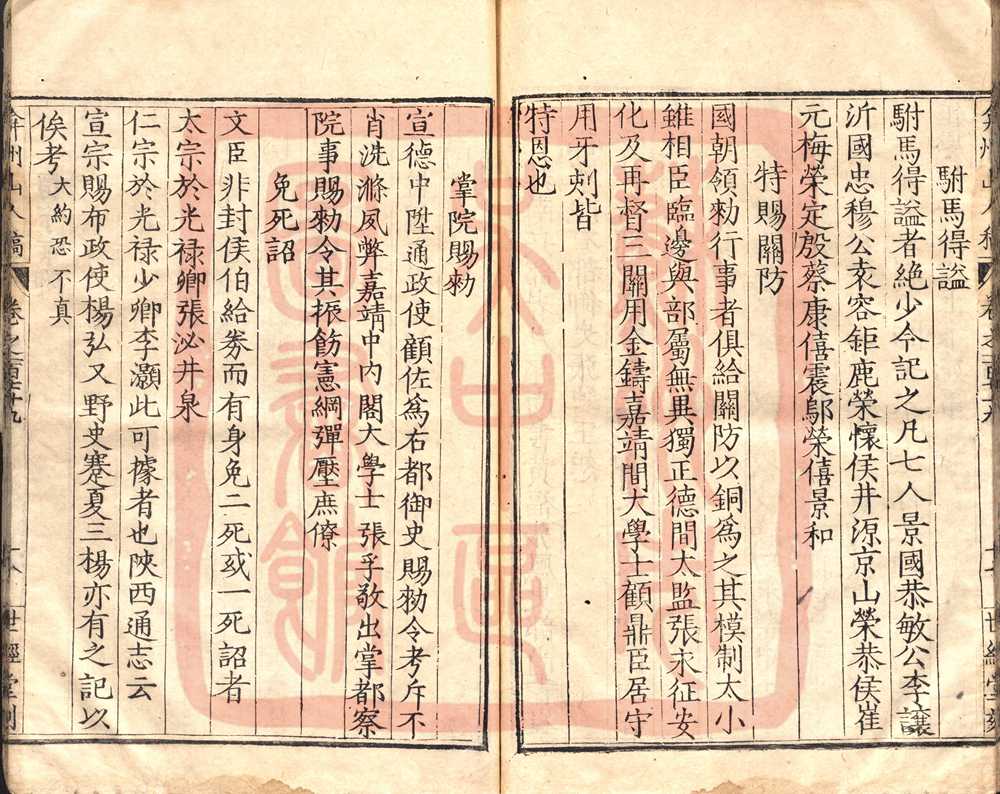 駙馬得謚
駙馬得謚者絶少今記之凡七人景國恭敏公李讓
沂國忠穆公袁容鉅鹿榮懷侯井源京山榮恭侯崔
元梅榮定殷蔡康僖震鄔榮僖景和
特賜關防
國朝領勑行事者俱給關防以銅爲之其模制太小
雖相臣臨邊與部屬無異獨正德間太監張永征安
化及再督三關用金鑄嘉靖間大學士顧鼎臣居守
用牙刻皆
特恩也
掌院賜勑
宣德中陞通政使顧佐爲右都御史賜勑令考斥不
肖洗滌夙弊嘉靖中内閣大學士張孚敬出掌都察
院事賜勑令其振飭憲綱彈壓庶僚
免死詔
文臣非封侯伯給劵而有身免二死或一死詔者
太宗於光禄卿張泌井泉
仁宗於光禄少卿李灝此可據者也陝西通志云
宣宗賜布政使楊弘又野史蹇夏三楊亦有之記以
俟考大約恐不真
弇州山人稿
卷之百七十九
十八
世經堂刻